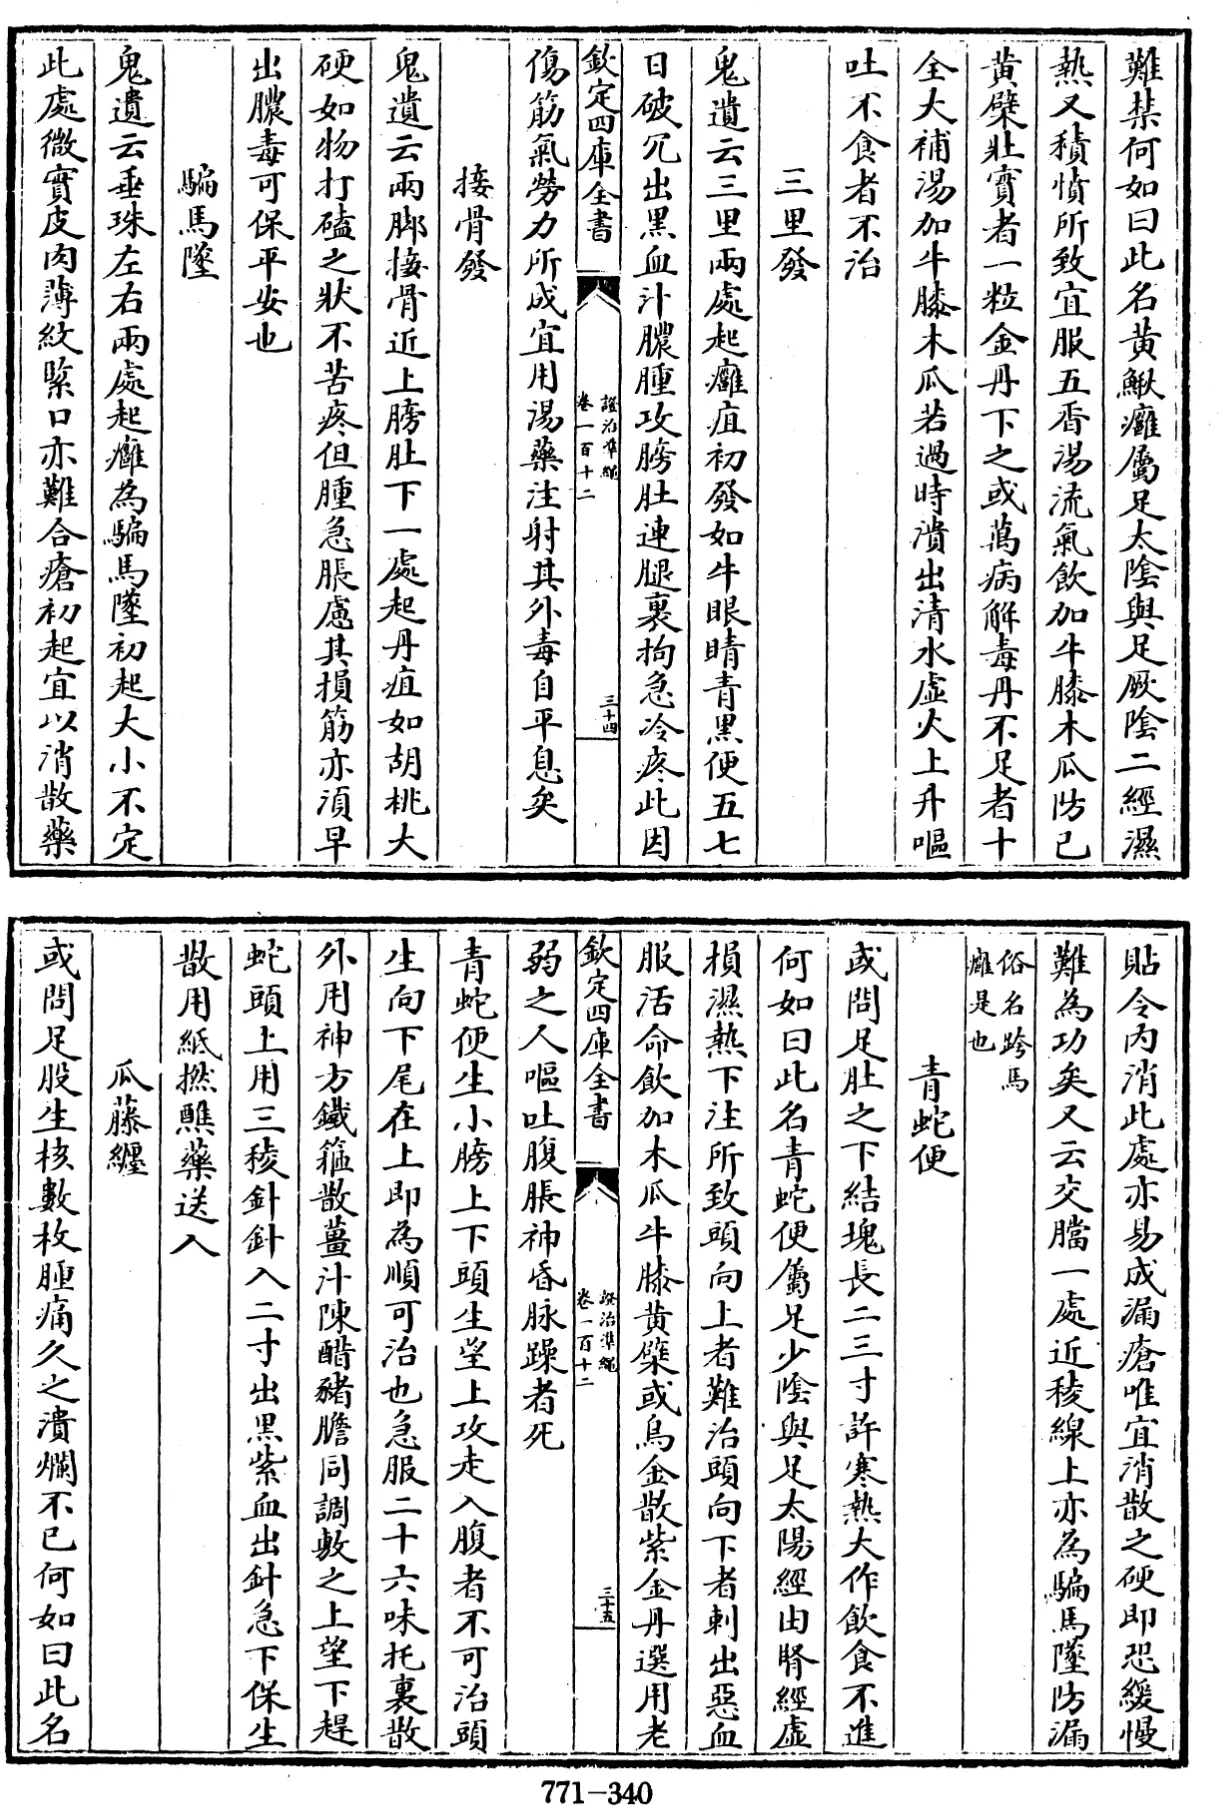 難禁何如曰此名黄鰍癰屬足太陰與足厥陰二經濕
熱又積憤所致宜服五香湯流氣飲加牛膝木瓜防已
黄蘗壯實者一粒金丹下之或萬病解毒丹不足者十
全大補湯加牛膝木瓜若過時潰出清水虛火上升嘔
吐不食者不治
三里發
鬼遺云三里兩處起癰疽初發如牛眼睛青黒便五七
日破穴出黒血汁膿腫攻臁肚連腿裏拘急冷疼此因
欽定四庫全書
證治準繩
卷一百十二
三十四
傷筋氣勞力所成宜用湯藥注射其外毒自平息矣
接骨發
鬼遺云兩脚接骨近上臁肚下一處起丹疽如胡桃大
硬如物打磕之狀不苦疼但腫急脹慮其損筋亦須早
出膿毒可保平安也
騙馬墜
鬼遺云垂珠左右兩處起癰為騙馬墜初起大小不定
此處微實皮肉薄紋緊口亦難合瘡初起宜以消散藥
貼令内消此處亦易成漏瘡唯宜消散之硬即恐緩慢
難為功矣又云交膅一處近稜線上亦為騙馬墜防漏
俗名跨馬
癰是也
青蛇便
或問足肚之下結塊長二三寸許寒熱大作飲食不進
何如曰此名青蛇便屬足少陰與足太陽經由腎經虛
損濕熱下注所致頭向上者難治頭向下者刺出惡血
服活命飲加木瓜牛膝黄蘗或烏金散紫金丹選用老
欽定四庫全書
證治準繩
卷一百十二
三十五
弱之人嘔吐腹脹神昏脉躁者死
青蛇便生小膀上下頭生望上攻走入腹者不可治頭
生向下尾在上即為順可治也急服二十六味托裏散
外用神方鐵箍散薑汁陳醋豬膽同調敷之上望下趕
蛇頭上用三稜針針入二寸出黒紫血出針急下保生
散用紙撚蘸藥送入
瓜藤纒
或問足股生核數枚腫痛久之潰爛不已何如曰此名
771-340